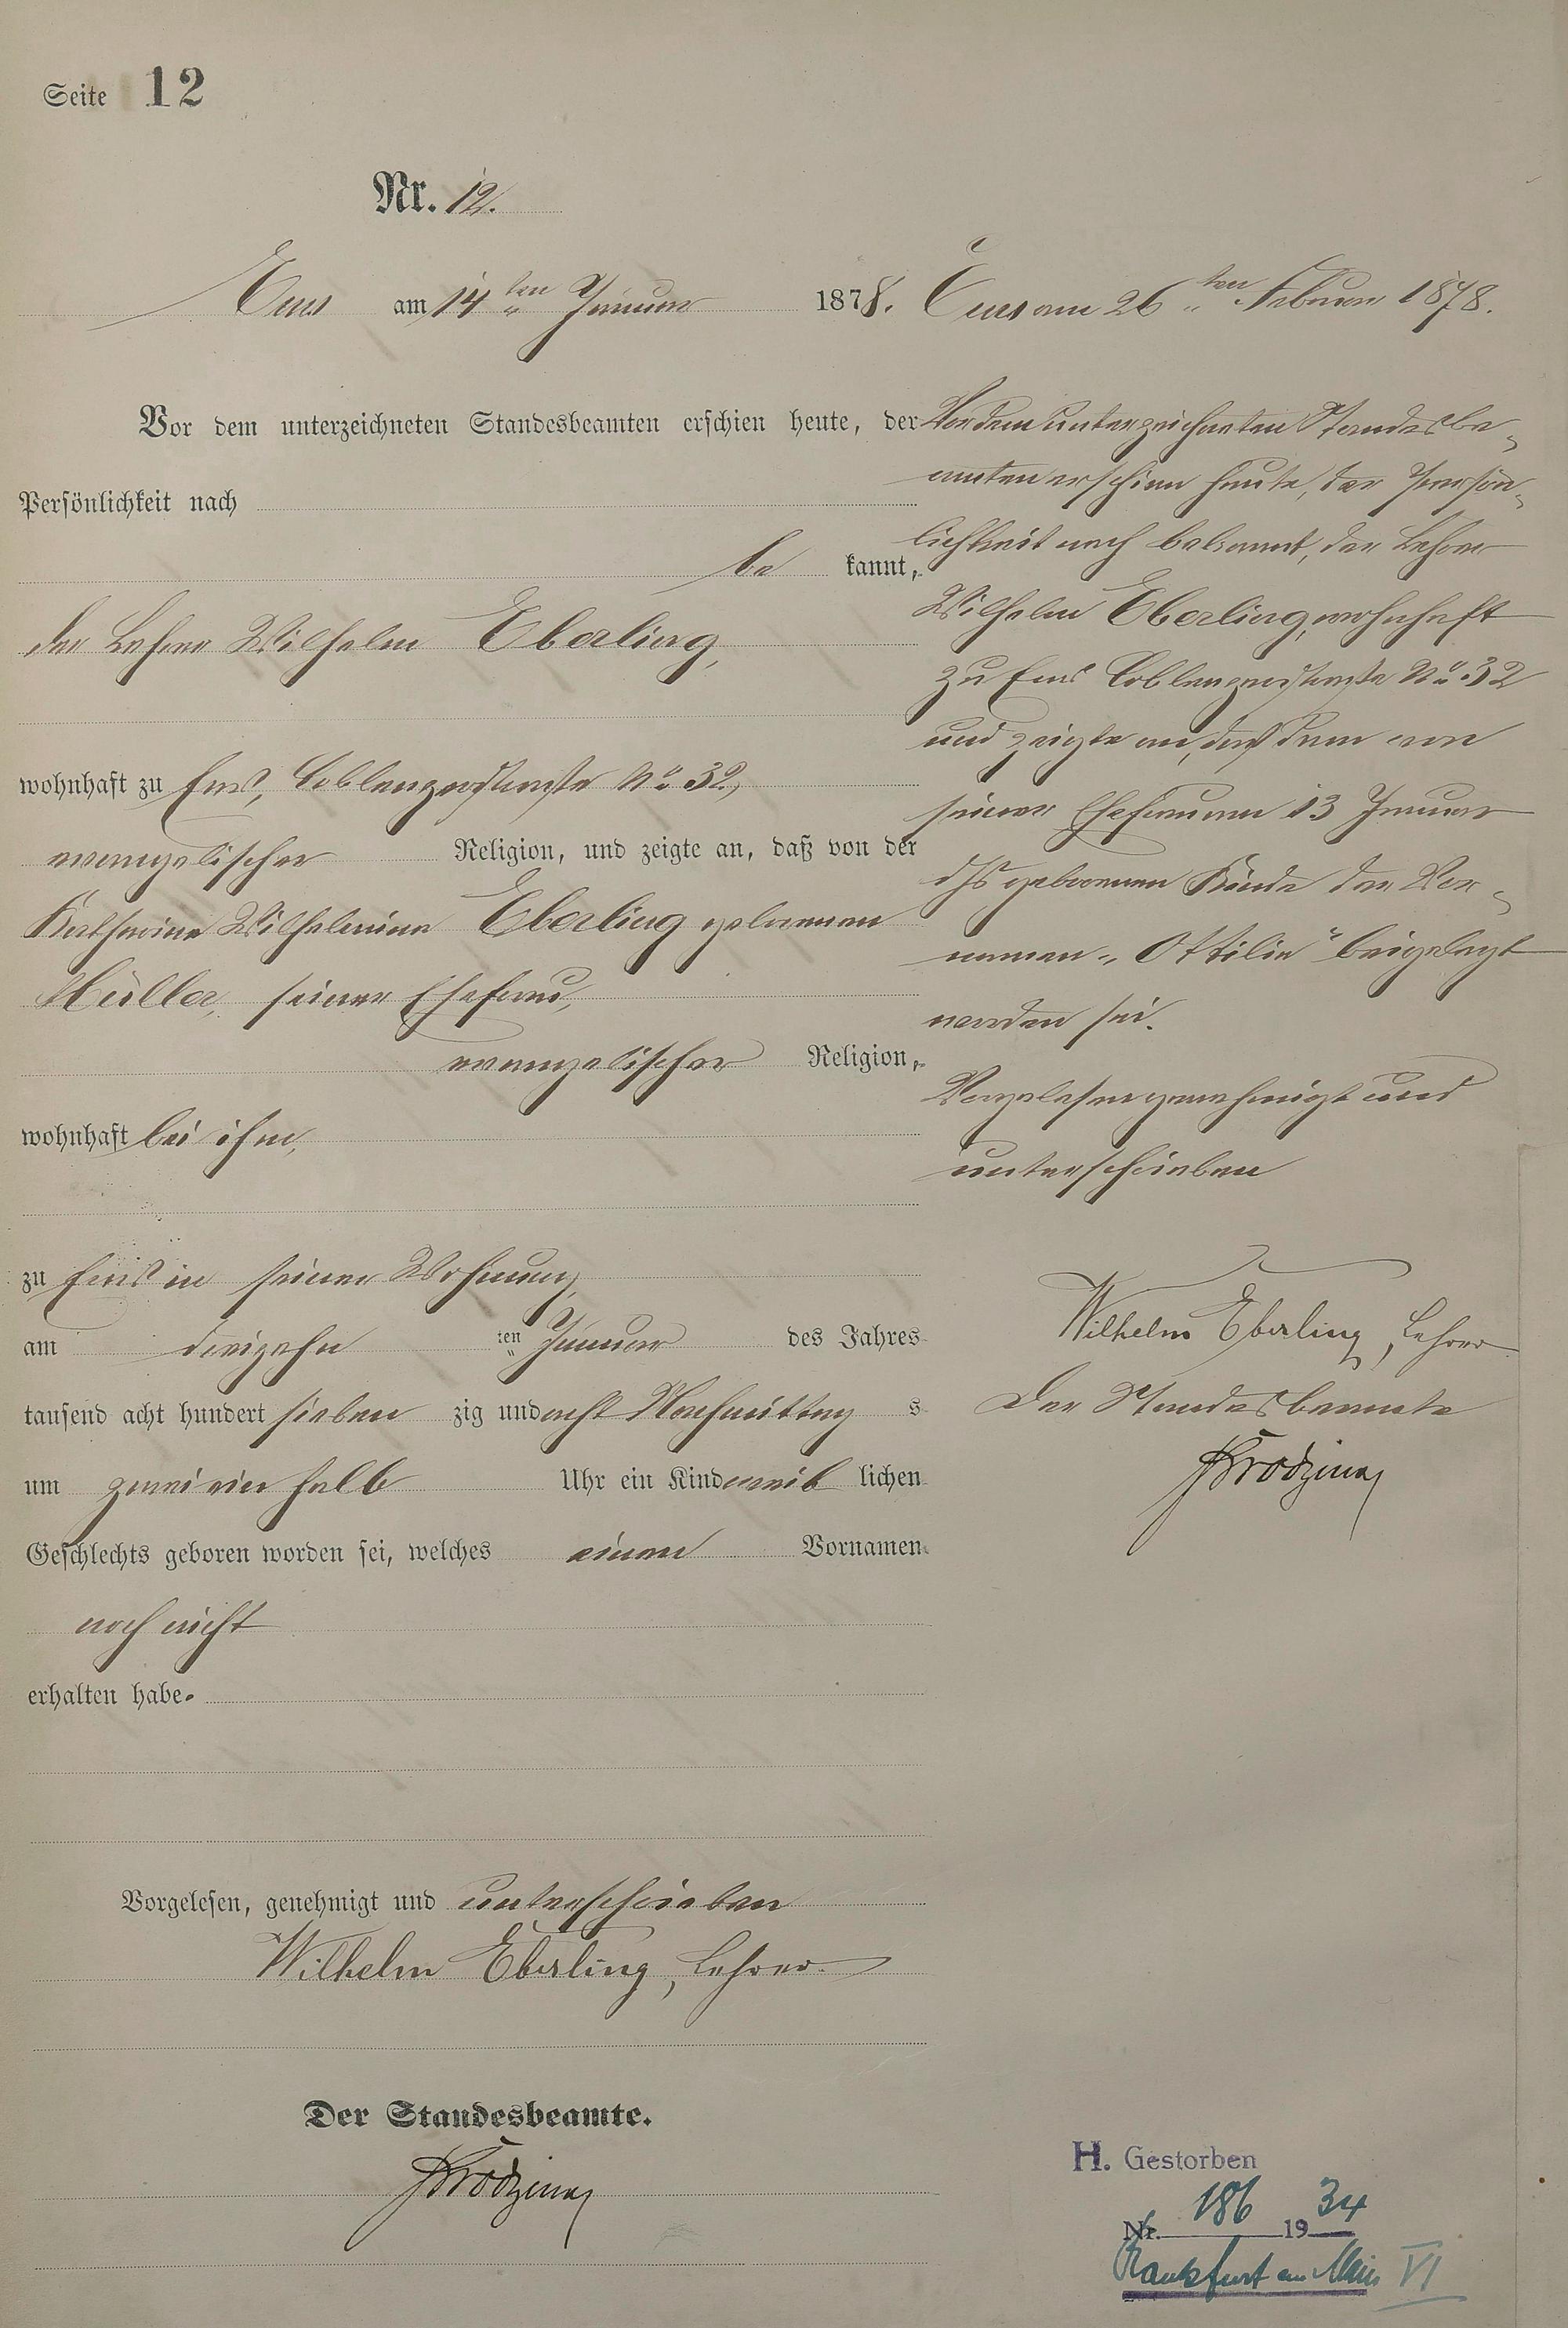 Seite 12
Nr. 12.
Ems am 14ten Januar 1878.
Vor dem unterzeichneten Standesbeamten erschien heute, der
Persönlichkeit nach
be kannt,
der Lehrer Wilhelm Eberling,
wohnhaft zu Ems, Coblenzerstraße No 32,
evangelischer Religion, und zeigte an, daß von der
Katharine Wilhelmine Eberling geborenen
Müller, seiner Ehefrau,
evangelischer Religion,
wohnhaft bei ihm,
zu Ems in seiner Wohnung,
am dreizehn ten Januar des Jahres
tausend acht hundert sieben zig und acht Nachmittag s
um zwei ein halb Uhr ein Kind weib lichen
Geschlechts geboren worden sei, welches einen Vornamen
noch nicht
erhalten habe.
Vorgelesen, genehmigt und unterschrieben
Wilhelm Eberling, Lehrer.
Der Standesbeamte.
Ems am 26ten Februar 1878.
Vor dem unterzeichneten Standesbe-
amten erschien heute, der Persön-
lichkeit nach bekannt, der Lehrer
Wilhelm Eberling, wohnhaft
zu Ems Coblenzerstraße No 32
und zeigte an, daß dem von
seiner Ehefrau am 13 Januar
dJs geborenen Kinde der Vor-
namen „Ottilie“ beigelegt
worden sei.
Vorgelesen genehmigt und
unterschrieben
Wilhelm Eberling, Lehrer
Der Standesbeamte
H. Gestorben
Nr. 186 1934
Frankfurt am Main VI